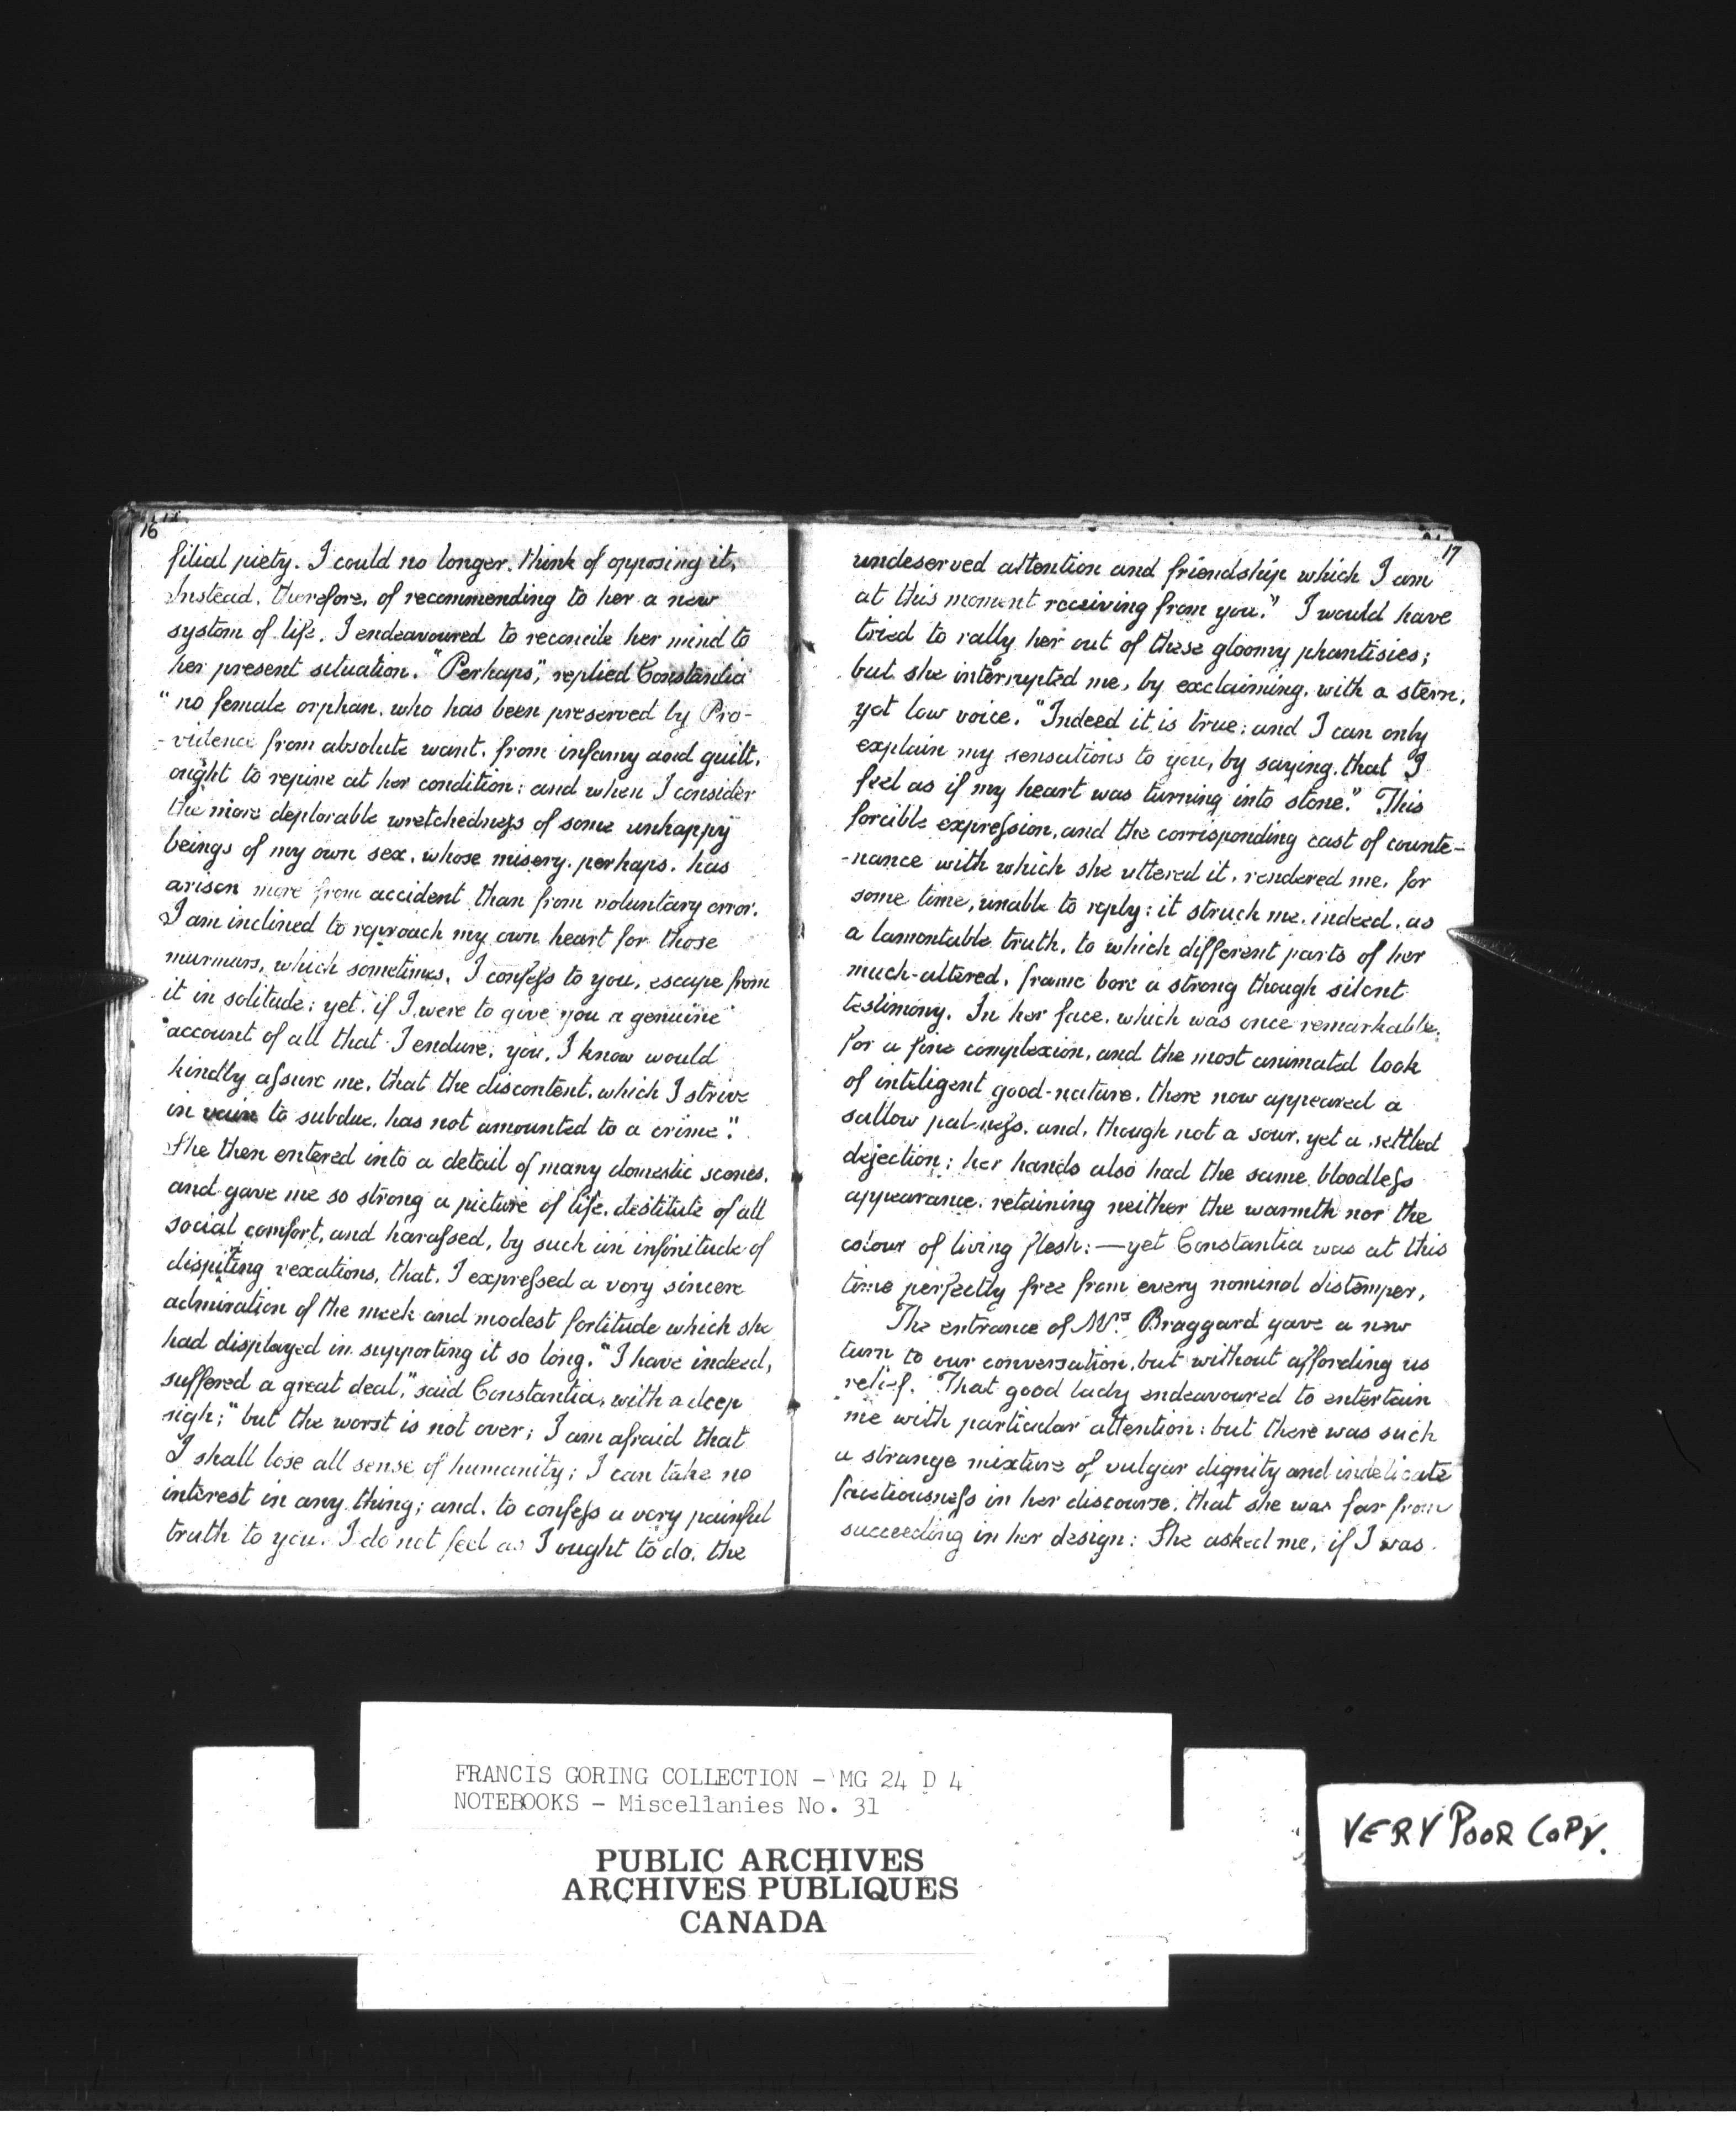 16
filial piety. I could no longer, think of opposing it,
Instead, therefore, of recommending to her a new
system of life, I endeavoured to reconcile her mind to
her present situation. "Perhaps", replied Constantia
" no female orphan, who has been preserved by Pro-
-vidence from absolute want, from infamy and guilt,
ought to repine at her condition: and when I consider
the more deplorable wretchedneſs of some unhappy
beings of my own sex, whose misery, perhaps, has
arisen more from accident than from voluntary error,
I am inclined to reproach my own heart for those
murmurs, which sometimes, I confeſs to you, escape from
it in solitude: yet, if I were to give you a genuine
account of all that I endure, you, I know would
kindly aſsure me, that the discontent, which I strive
in vain to subdue, has not amounted to a crime."
She then entered into a detail of many domestic scenes,
and gave me so strong a picture of life, destitute of all
social comfort, and haraſsed, by such an infinitude of
dispiting vexations, that, I expreſsed a very sincere
admiration of the meek and modest fortitude which she
had displayed in supporting it so long. "I have indeed,
suffered a great deal," said Constantia, with a deep
sigh; "but the worst is not over; I am afraid that
I shall lose all sense of humanity; I can take no
interest in any thing; and, to confeſs a very painful
truth to you, I do not feel as I ought to do, the
17
undeserved attention and friendship which I am
at this moment receiving from you." I would have
tried to rally her out of these gloomy phantisies;
but she interrupted me, by exclaiming, with a stern,
yet low voice, "Indeed it is true: and I can only
explain my sensations to you, by saying, that I
feel as if my heart was turning into stone." This
forcible expreſsion, and the corrisponding cast of counte-
-nance with which she uttered it, rendered me, for
some time, unable to reply: it struck me, indeed, as
a lamentable truth, to which different parts of her
much-altered, frame bore a strong though silent
testimony. In her face, which was once remarkable,
for a fine complexion, and the most animated look
of inteligent good-nature, there now appeared a
sallow paleneſs, and, though not a sour, yet a settled
dejection; her hands also had the same bloodleſs
appearance, retaining neither the warmth nor the
colour of living flesh: — yet Constantia was at this
time perfectly free from every nominal distemper,
The entrance of Mrs. Braggard gave a new
turn to our conversation, but without affording us
relief. That good lady endeavoured to entertain
me with particular attention: but there was such
a strange mixture of vulgar dignity and indelicate
facetiousneſs in her discourse, that she was far from
succeeding in her design: She asked me, if I was
FRANCIS GORING COLLECTION - MG 24 D 4
NOTEBOOKS - Miscellanies No. 31
PUBLIC ARCHIVES
ARCHIVES PUBLIQUES
CANADA
VERY POOR COPY.